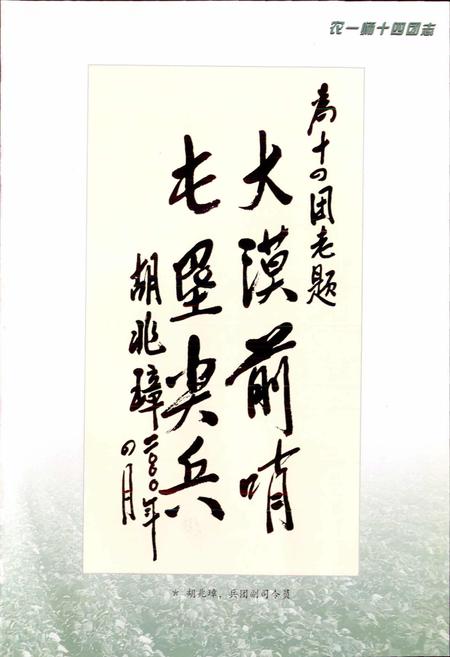 农一师十四团志
为十四团志题
大漠前哨
屯垦尖兵
胡兆璋二〇〇〇年
四月
* 胡兆璋，兵团副司令员